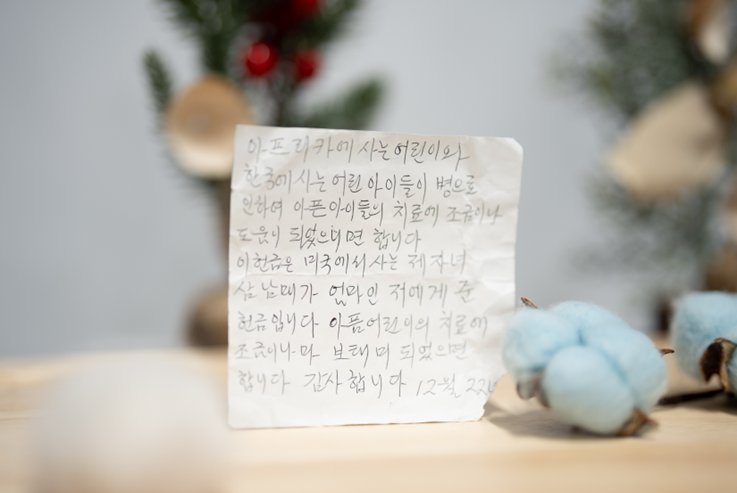 아프리카에 사는 어린이와
한국에 사는 어린 아이들이 병으로
인하여 아픈 아이들의 치료에 조금이나
도움이 되었으니면 합니다
이 헌금은 미국에서 사는 제 자녀
삼남매가 엄마인 저에게 준
헌금입니다 아픔어린이의 치료에
조금이나마 보태미 되었으면
합니다 감사합니다 12월 22일